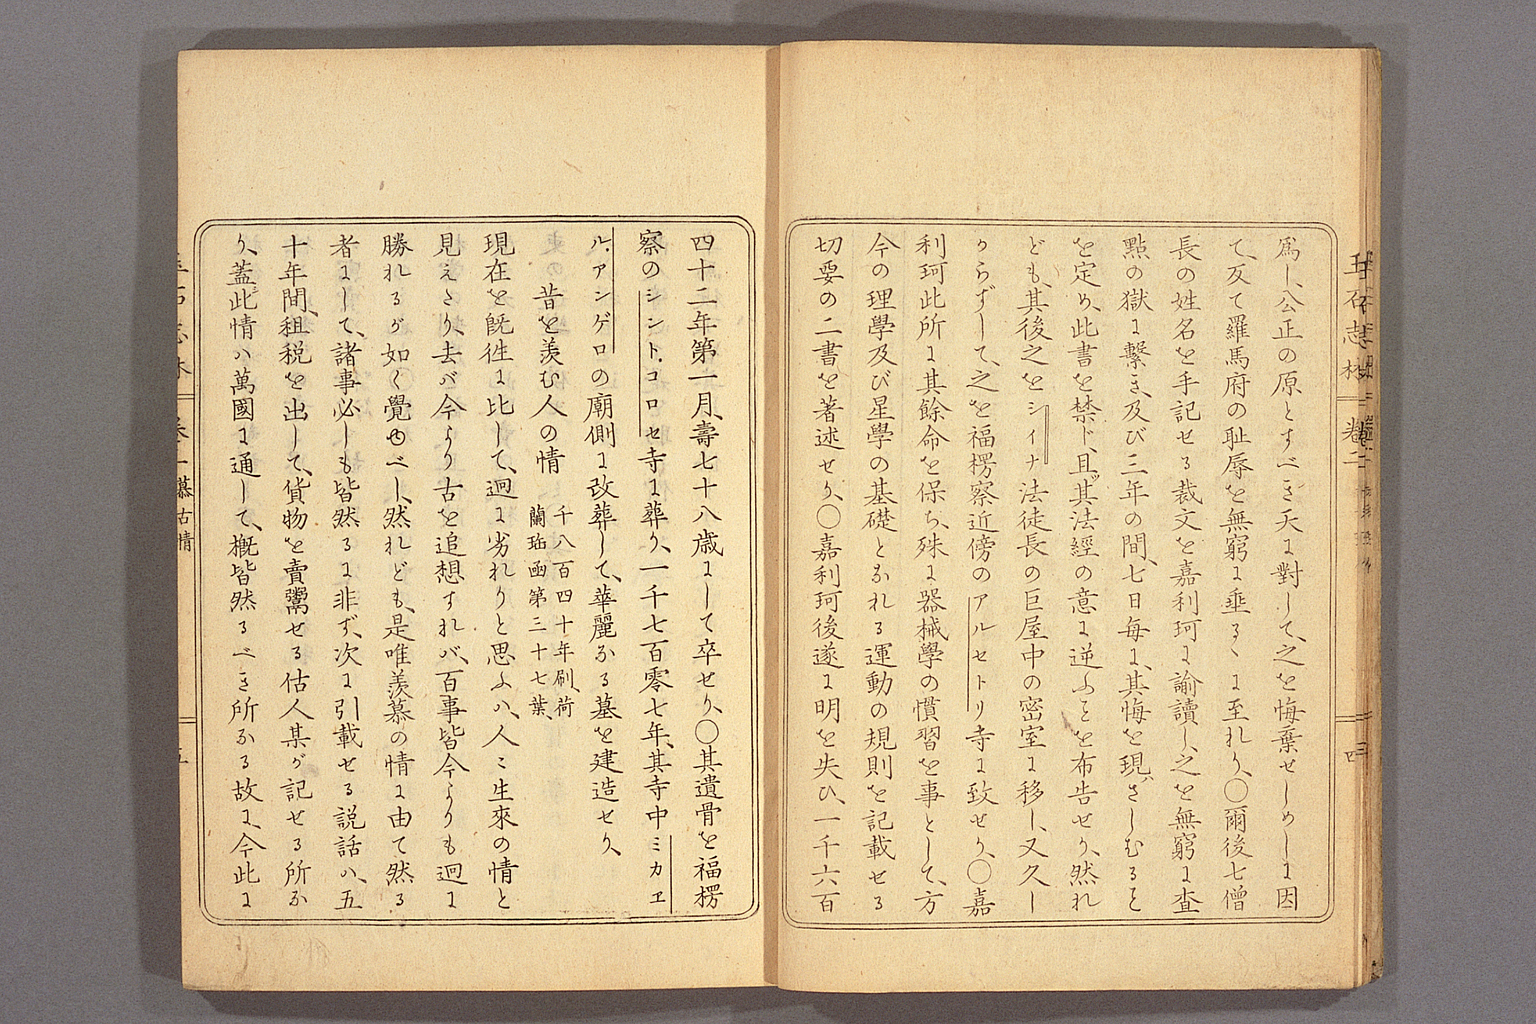 爲し、公正の原とすべき天に對して、之を悔棄せしめしに因
て、反て羅馬府の耻辱を無窮に垂るゝに至れり、〇爾後七僧
長の姓名を手記せる裁文を嘉利珂に諭讀し、之を無窮に査
點の獄に繋ぎ、及び三年の間、七日毎に、其悔を現さしむると
を定め、此書を禁じ、且其法經の意に逆ふとを布告せり、然れ
ども、其後之をシイナ法徒長の巨屋中の密室に移し、又久し
からずして、之を福楞察近傍のアルセトリ寺に致せり、〇嘉
利珂此所に其餘命を保ち、殊に器械學の慣習を事として、方
今の理學及び星學の基礎となれる運動の規則を記載せる
切要の二書を著述せり、〇嘉利珂後遂に明を失ひ、一千六百
玉石志林 卷二
四
四十二年第一月、壽七十八歳にして卒せり、〇其遺骨を福楞
察のシント.コロセ寺に葬り、一千七百零七年、其寺中ミカヱ
ル.アンゲロの廟側に改葬して、華麗なる墓を建造せり、
昔を羨む人の情
千八百四十年刷、荷
蘭珆函第三十七葉、
現在を既徃に比して、迥に劣れりと思ふハ、人々生來の情と
見えたり、去バ今より古を追想すれバ、百事皆今よりも迥に
勝れるが如く覺ゆべし、然れども、是唯羨慕の情に由て然る
者にして、諸事必しも皆然るに非ず、次に引載せる説話ハ、五
十年間、租税を出して、貨物を賣鬻せる估人某が記せる所な
り、蓋此情ハ萬國に通して、概皆然るべき所なる故に、今此に
慕古情
五